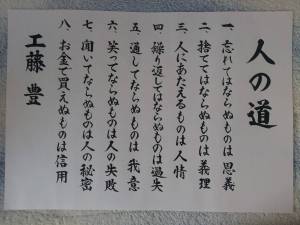 人の道
一、忘れてはならぬものは恩義
二、捨ててはならぬものは義理
三、人にあたえるものは人情
四、繰り返してはならぬものは過失
五、通してならぬものは我意
六、笑ってならぬものは人の失敗
七、聞いてならぬものは人の秘密
八、お金で買えぬものは信用
工藤 豊